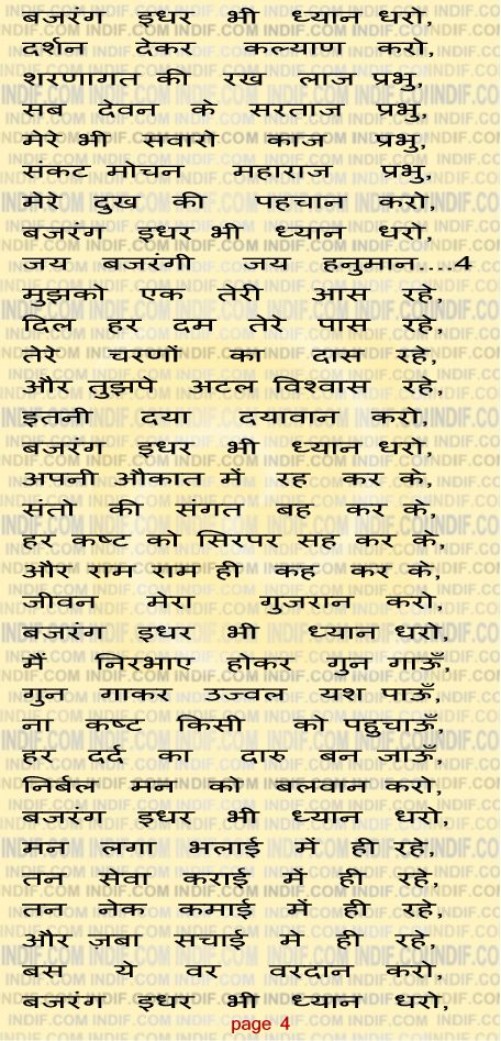 बजरंग इधर भी ध्यान धरो,
दर्शन देकर कल्याण करो,
शरणागत की रख लाज प्रभु,
सब देवन के सरताज प्रभु,
मेरे भी सवारो काज प्रभु,
संकट मोचन महाराज प्रभु,
मेरे दुख की पहचान करो,
बजरंग इधर भी ध्यान धरो,
जय बजरंगी जय हनुमान....4
मुझको एक तेरी आस रहे,
दिल हर दम तेरे पास रहे,
तेरे चरणों का दास रहे,
और तुझपे अटल विश्वास रहे,
इतनी दया दयावान करो,
बजरंग इधर भी ध्यान धरो,
अपनी औकात में रह कर के,
संतो की संगत बह कर के,
हर कष्ट को सिरपर सह कर के,
और राम राम ही कह कर के,
जीवन मेरा गुजरान करो,
बजरंग इधर भी ध्यान धरो,
मैं निरभाए होकर गुन गाऊँ,
गुन गाकर उज्वल यश पाऊँ,
ना कष्ट किसी को पहुचाऊँ,
हर दर्द का दारु बन जाऊँ,
निर्बल मन को बलवान करो,
बजरंग इधर भी ध्यान धरो,
मन लगा भलाई में ही रहे,
तन सेवा कराई में ही रहे,
तन नेक कमाई में ही रहे,
और ज़बा सचाई मे ही रहे,
बस ये वर वरदान करो,
बजरंग इधर भी ध्यान धरो,
page 4